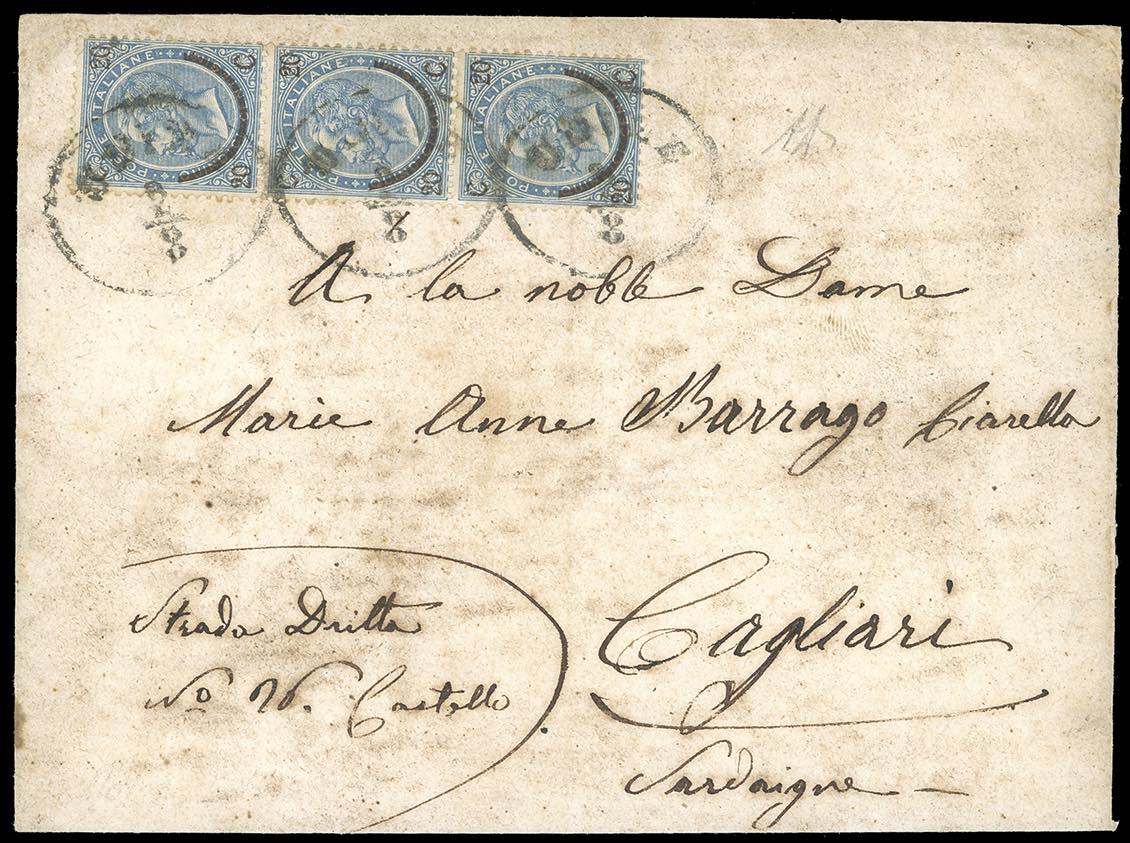 POSTE ITALIANE C 20 20 20
POSTE ITALIANE C 20 20 20
POSTE ITALIANE C 20 20 20
A la noble Dame
Marie Anne Barrago Ciarella
Strada Dritta
No Castello
Cagliari
Sardaigne –